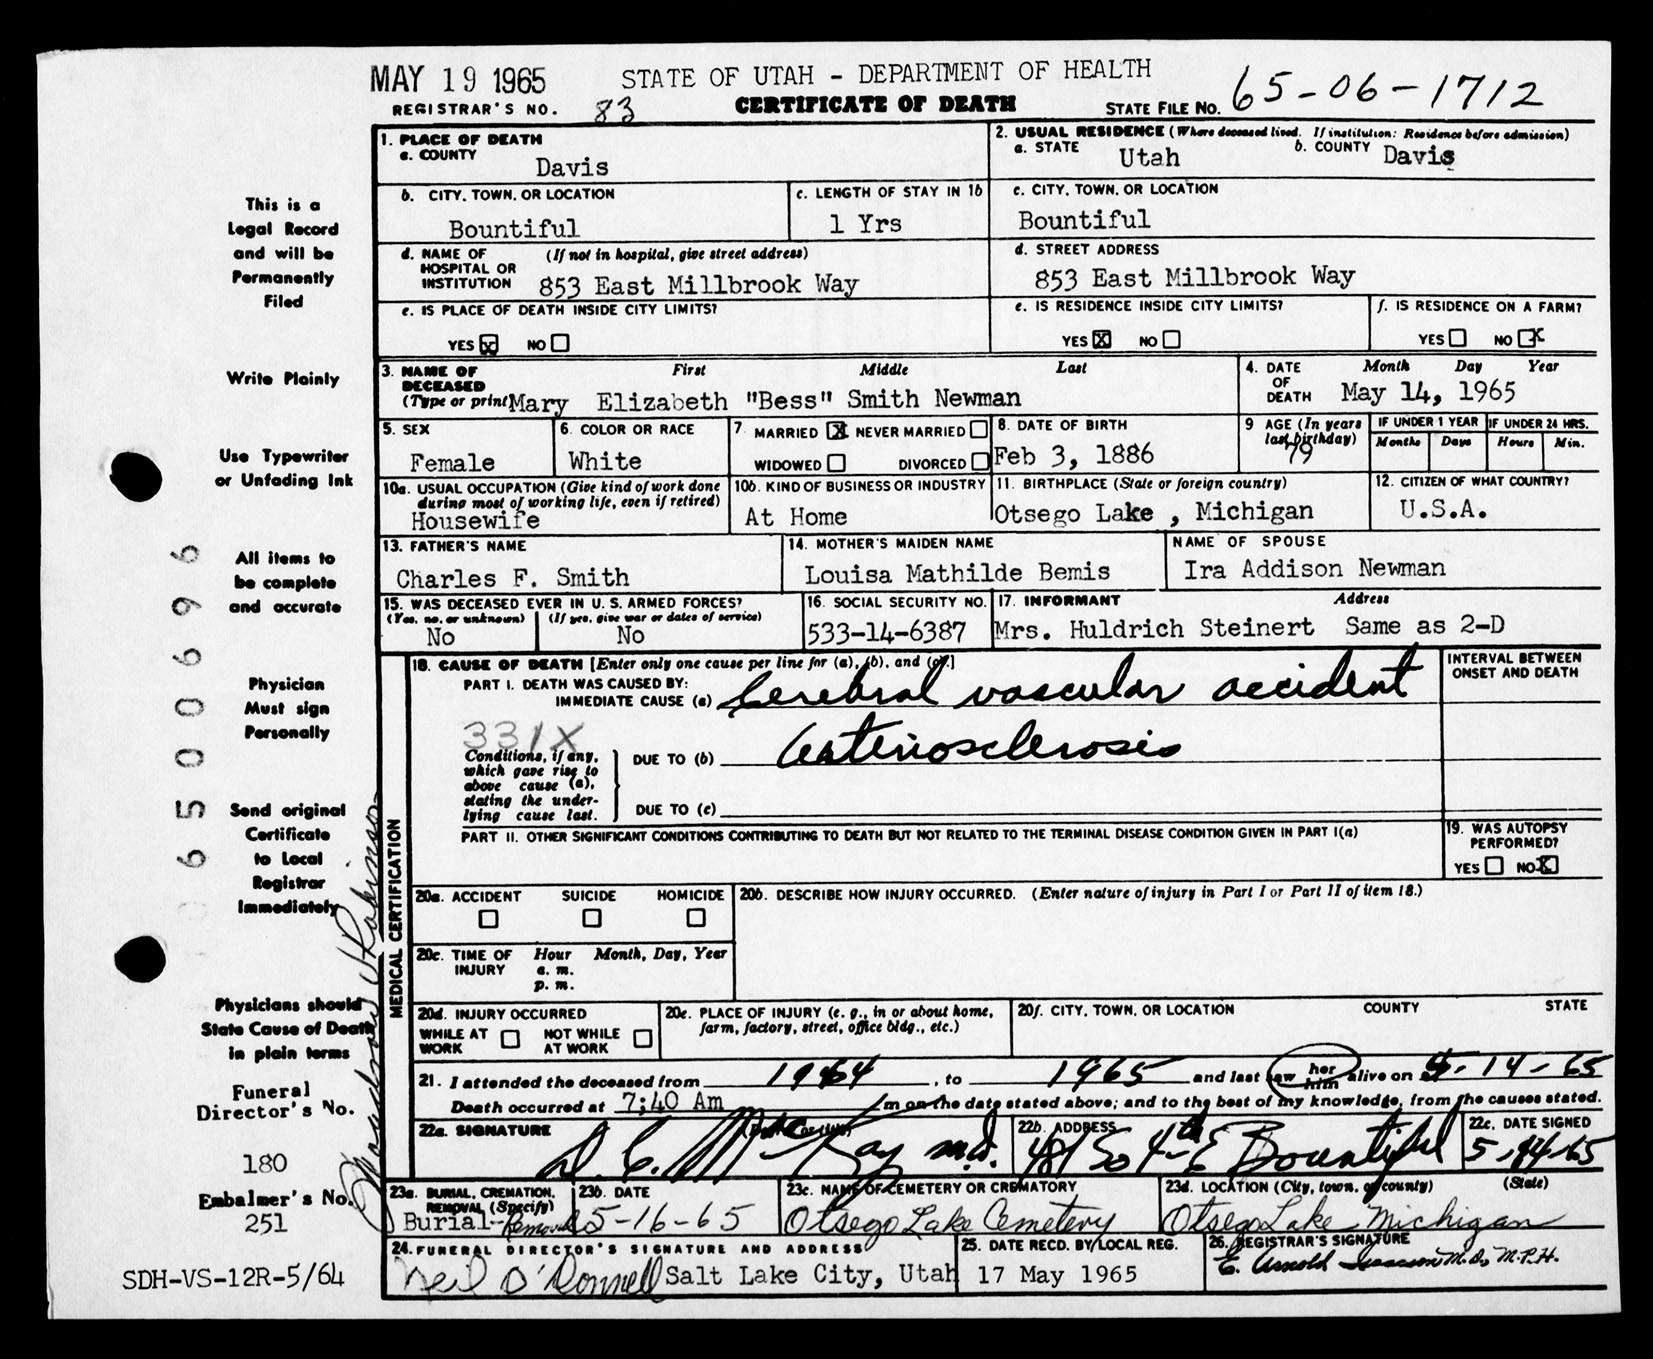 MAY 19 1965
STATE OF UTAH - DEPARTMENT OF HEALTH
CERTIFICATE OF DEATH
REGISTRAR'S NO. 83
STATE FILE NO. 65-06-1712
1. PLACE OF DEATH
a. COUNTY
Davis
2. USUAL RESIDENCE (Where deceased lived. If institution: Residence before admission)
a. STATE Utah b. COUNTY Davis
b. CITY, TOWN, OR LOCATION
Bountiful
c. LENGTH OF STAY IN 1b
1 Yrs
c. CITY, TOWN, OR LOCATION
Bountiful
d. NAME OF (If not in hospital, give street address)
HOSPITAL OR
INSTITUTION 853 East Millbrook Way
d. STREET ADDRESS
853 East Millbrook Way
e. IS PLACE OF DEATH INSIDE CITY LIMITS?
YES X NO
e. IS RESIDENCE INSIDE CITY LIMITS?
YES X NO
f. IS RESIDENCE ON A FARM?
YES NO X
3. NAME OF First Middle Last
DECEASED
(Type or print) Mary Elizabeth "Bess" Smith Newman
4. DATE Month Day Year
OF
DEATH May 14, 1965
5. SEX
Female
6. COLOR OR RACE
White
7 MARRIED X NEVER MARRIED
WIDOWED DIVORCED
8. DATE OF BIRTH
Feb 3, 1886
9 AGE (In years
last birthday)
79
IF UNDER 1 YEAR IF UNDER 24 HRS.
Months Days Hours Min.
10a. USUAL OCCUPATION (Give kind of work done
during most of working life, even if retired)
Housewife
10b. KIND OF BUSINESS OR INDUSTRY
At Home
11. BIRTHPLACE (State or foreign country)
Otsego Lake , Michigan
12. CITIZEN OF WHAT COUNTRY?
U.S.A.
13. FATHER'S NAME
Charles F. Smith
14. MOTHER'S MAIDEN NAME
Louisa Mathilde Bemis
NAME OF SPOUSE
Ira Addison Newman
15. WAS DECEASED EVER IN U. S. ARMED FORCES?
(Yes, no, or unknown) (If yes, give war or dates of service)
No No
16. SOCIAL SECURITY NO.
533-14-6387
17. INFORMANT Address
Mrs. Huldrich Steinert Same as 2-D
MEDICAL CERTIFICATION
18. CAUSE OF DEATH [Enter only one cause per line for (a), (b), and (c).]
PART I. DEATH WAS CAUSED BY:
IMMEDIATE CAUSE (a) Cerebral vascular accident
INTERVAL BETWEEN
ONSET AND DEATH
331X
Conditions, if any,
which gave rise to
above cause (a),
stating the under-
lying cause last.
DUE TO (b) arteriosclerosis
DUE TO (c)
PART II. OTHER SIGNIFICANT CONDITIONS CONTRIBUTING TO DEATH BUT NOT RELATED TO THE TERMINAL DISEASE CONDITION GIVEN IN PART I(a)
19. WAS AUTOPSY
PERFORMED?
YES NO X
20a. ACCIDENT SUICIDE HOMICIDE
20b. DESCRIBE HOW INJURY OCCURRED. (Enter nature of injury in Part I or Part II of item 18.)
20c. TIME OF Hour Month, Day, Year
INJURY a. m.
p. m.
20d. INJURY OCCURRED
WHILE AT NOT WHILE
WORK AT WORK
20e. PLACE OF INJURY (e. g., in or about home,
farm, factory, street, office bldg., etc.)
20f. CITY, TOWN, OR LOCATION COUNTY STATE
21. I attended the deceased from 1964, to 1965 and last saw her him alive on 5-14-65
Death occurred at 7;40 Am m on the date stated above; and to the best of my knowledge, from the causes stated.
22a. SIGNATURE
D. C. McKay M.d.
22b. ADDRESS
481 So 4th E Bountiful
22c. DATE SIGNED
5-14-65
23a. BURIAL, CREMATION,
REMOVAL (Specify)
Burial-Removal
23b. DATE
5-16-65
23c. NAME OF CEMETERY OR CREMATORY
Otsego Lake Cemetery
23d. LOCATION (City, town, or county) (State)
Otsego Lake Michigan
24. FUNERAL DIRECTOR'S SIGNATURE AND ADDRESS
Neil O'Donnell Salt Lake City, Utah
25. DATE RECD. BY LOCAL REG.
17 May 1965
26. REGISTRAR'S SIGNATURE
E. Arnold Isaacson M.D., M.P.H.
This is a
Legal Record
and will be
Permanently
Filed
Write Plainly
Use Typewriter
or Unfading Ink
All items to
be complete
and accurate
Physician
Must sign
Personally
Send original
Certificate
to Local
Registrar
Immediately
Physicians should
State Cause of Death
in plain terms
Funeral
Director's No.
180
Embalmer's No.
251
SDH-VS-12R-5/64
6500696
Robinson